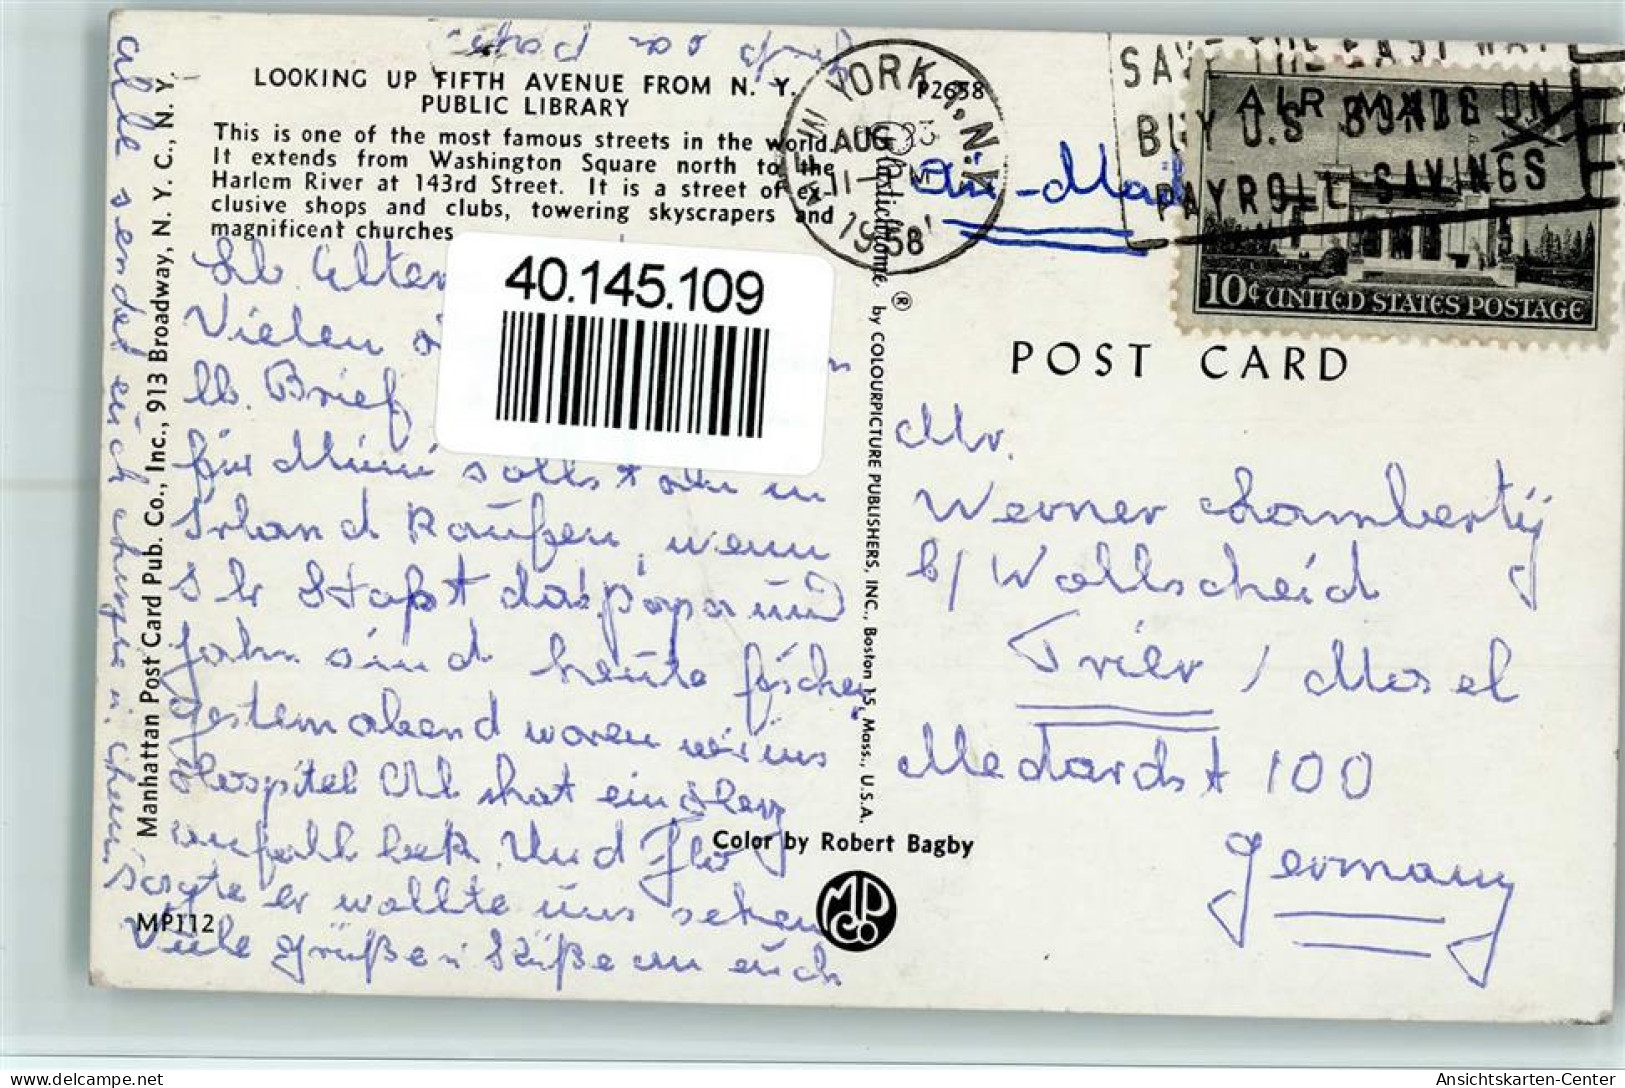 LOOKING UP FIFTH AVENUE FROM N. Y.
PUBLIC LIBRARY
P2658
This is one of the most famous streets in the world.
It extends from Washington Square north to the
Harlem River at 143rd Street. It is a street of ex-
clusive shops and clubs, towering skyscrapers and
magnificent churches
Manhattan Post Card Pub. Co., Inc., 913 Broadway, N. Y. C., N. Y.
Plastichrome ® by COLOURPICTURE PUBLISHERS, INC., Boston 15, Mass., U.S.A.
NEW YORK, 1, N.Y.
AUG 23
11 PM
1958
SAVE THE EASY WAY
BUY U.S. BONDS ON
PAYROLL SAVINGS
AIR MAIL
10¢ UNITED STATES POSTAGE
Air-Mail
POST CARD
40.145.109
Lb Eltern
Vielen
lb. Brief
für Mimi sollst du in
Irland kaufen, wenn
Du Stopst das papa und
John sind heute fischen
gestern abend waren wir ins
Hospital hat ein
unfall
sagte er wollte uns sehen
Viele Grüße Küße an euch
alle sendet euch
Mr.
Werner Lambertij
b/ Wollscheid
Trier / Mosel
Medardst 100
Germany
Color by Robert Bagby
MPCo
MP112
Ansichtskarten-Center